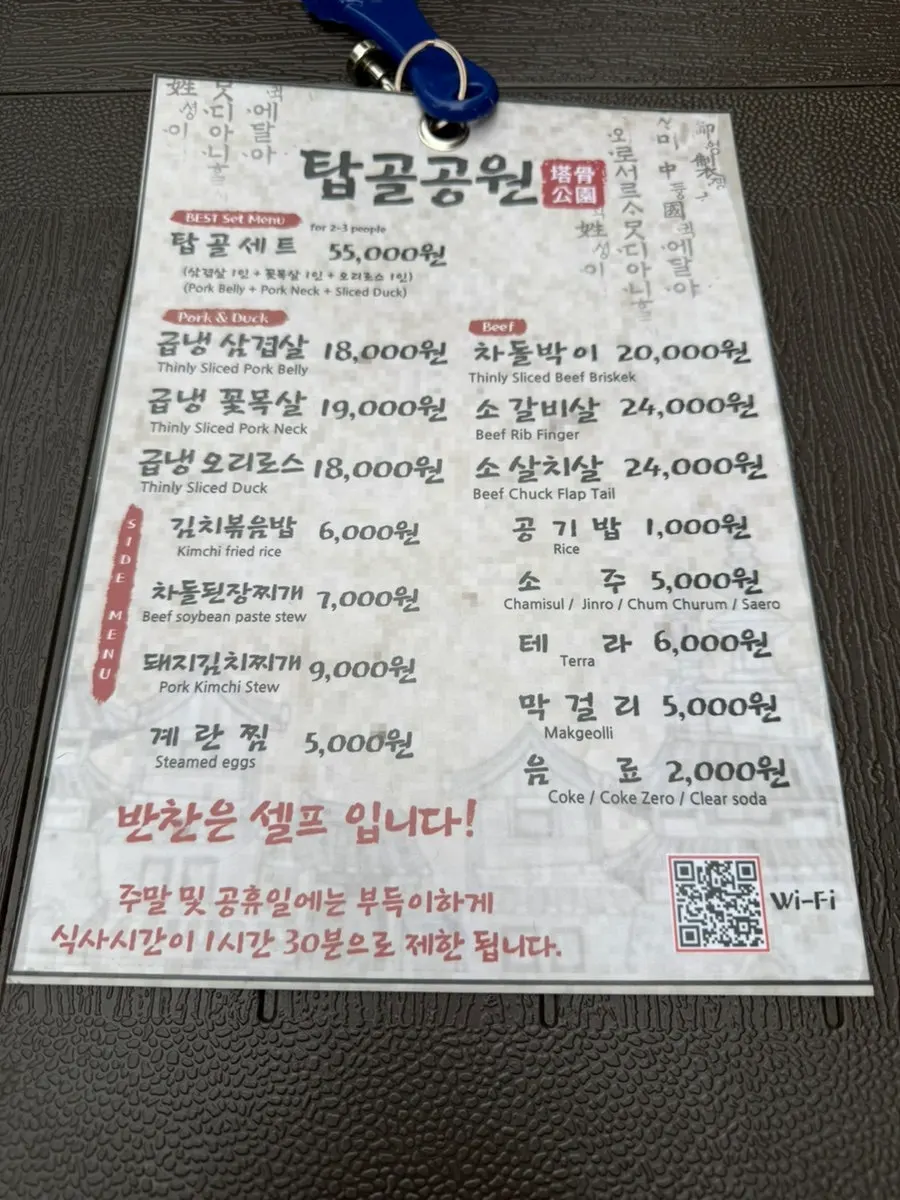 탑골공원
塔骨
公園
BEST Set Menu
for 2-3 people
탑골세트 55,000원
(삼겹살 1인 + 꽃목살 1인 + 오리로스 1인)
(Pork Belly + Pork Neck + Sliced Duck)
Pork & Duck
급냉 삼겹살 18,000원
Thinly Sliced Pork Belly
급냉 꽃목살 19,000원
Thinly Sliced Pork Neck
급냉 오리로스 18,000원
Thinly Sliced Duck
SIDE MENU
김치볶음밥 6,000원
Kimchi fried rice
차돌된장찌개 7,000원
Beef soybean paste stew
돼지김치찌개 9,000원
Pork Kimchi Stew
계란찜 5,000원
Steamed eggs
Beef
차돌박이 20,000원
Thinly Sliced Beef Briskek
소갈비살 24,000원
Beef Rib Finger
소살치살 24,000원
Beef Chuck Flap Tail
공기밥 1,000원
Rice
소주 5,000원
Chamisul / Jinro / Chum Churum / Saero
테라 6,000원
Terra
막걸리 5,000원
Makgeolli
음료 2,000원
Coke / Coke Zero / Clear soda
반찬은 셀프 입니다!
주말 및 공휴일에는 부득이하게
식사시간이 1시간 30분으로 제한 됩니다.
Wi-Fi